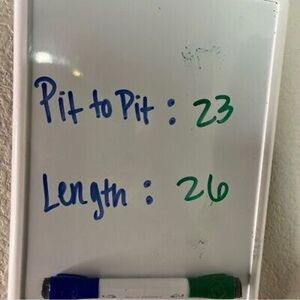 Pit to Pit : 23
Length : 26